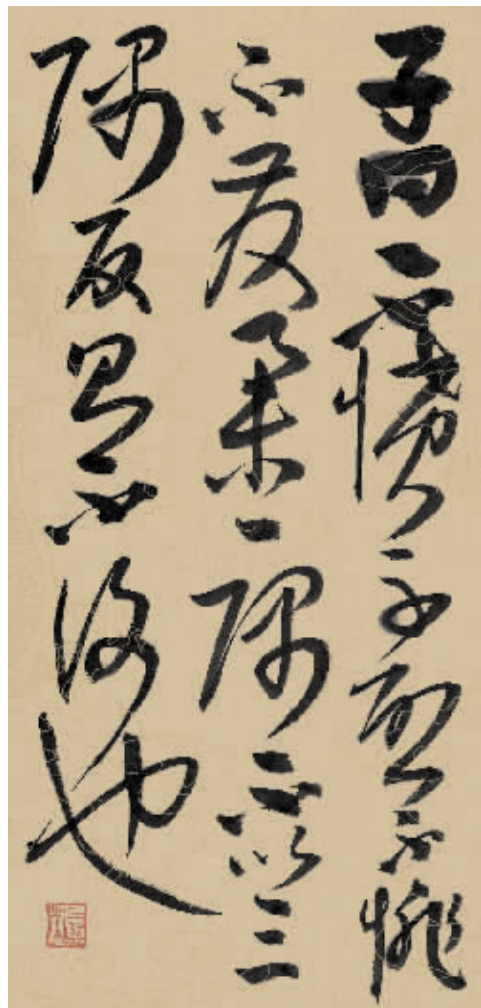 子曰不憤不啓不悱
不發舉一隅不以三
隅反則不復也